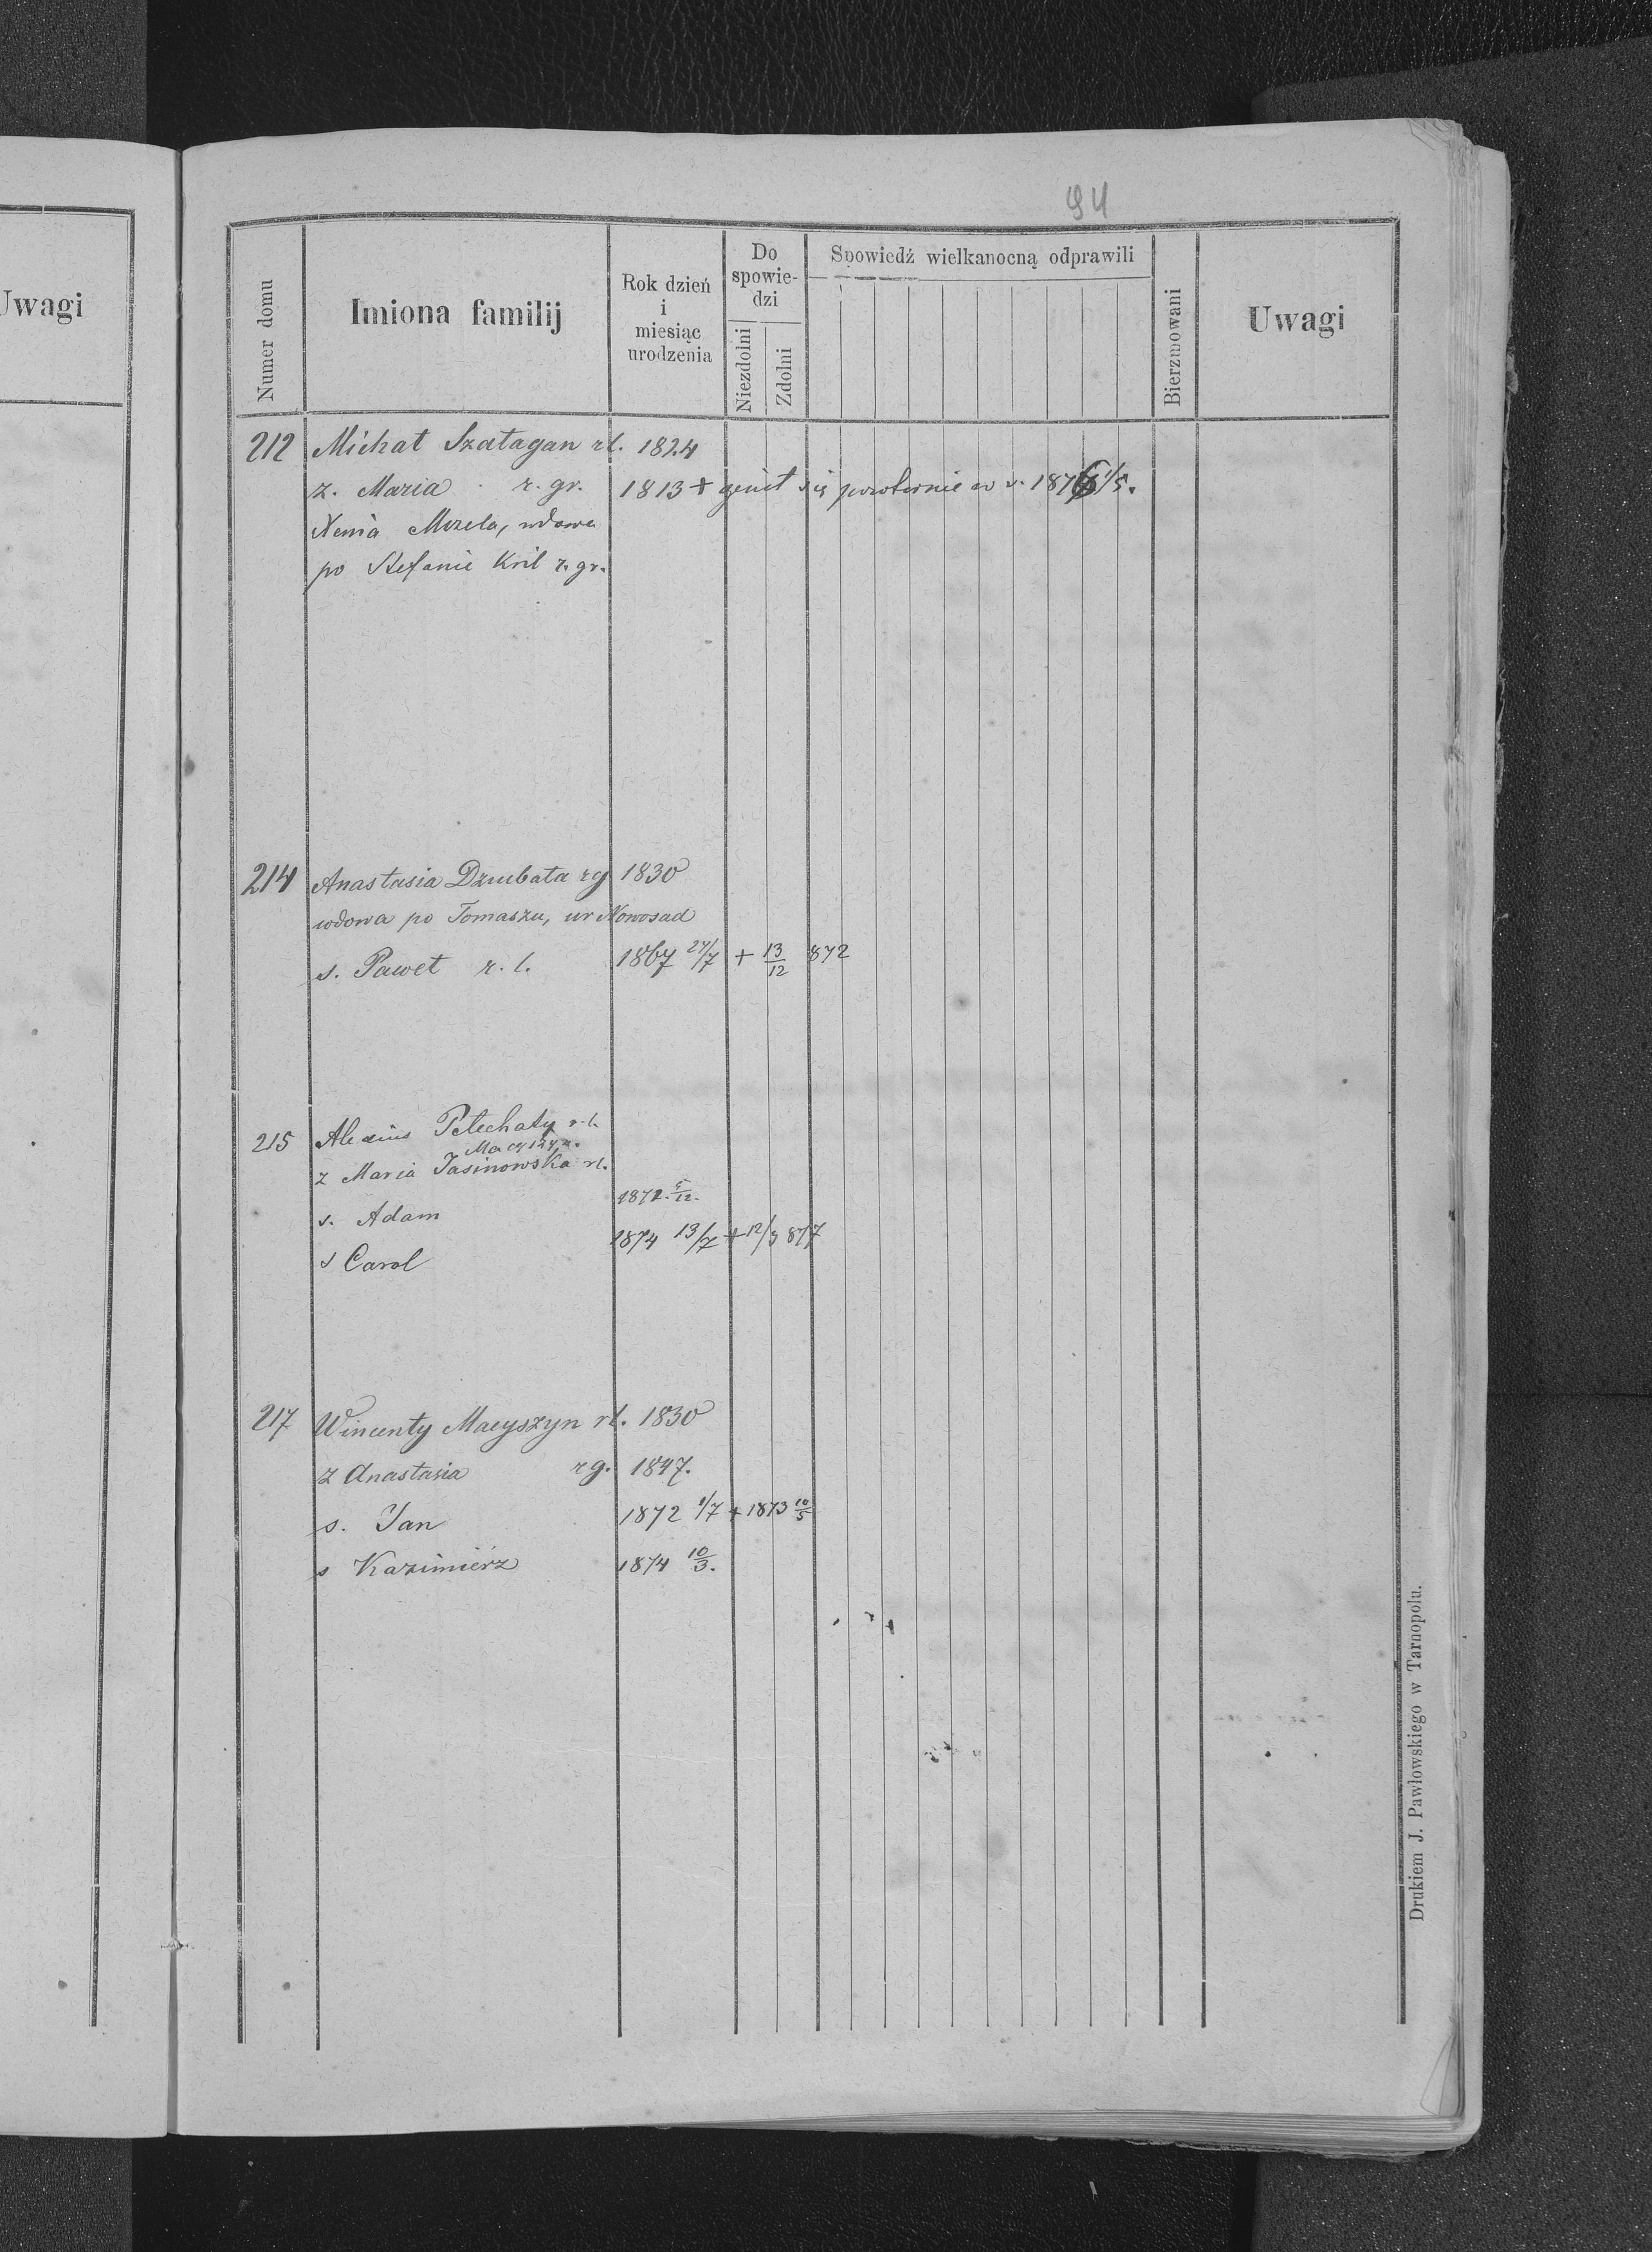 Uwagi
94
Numer domu
Imiona familij
Rok dzień
i
miesiąc
urodzenia
Do
spowie-
dzi
Niezdolni
Zdolni
Spowiedź wielkanocną odprawili
Bierzmowani
Uwagi
212 Michał Szałagan rł. 1824
ż. Maria r. gr. 1813 + żenił się powtórnie w r. 1876 1/5.
Xenia Mozela, wdowa
po Stefanie Kril r. gr.
214 Anastasia Dziubata rg 1830
wdowa po Tomaszu, ur Nowosad
s. Paweł r. l. 1867 27/7 + 13/12 872
215 Alexius Pelechaty r. l.
Macyszyn
ż Maria Jasinowska rl.
s. Adam 1872. 5/12.
s Carol 1874 13/7 + 12/3 877
217 Wincenty Macyszyn rł. 1830
ż Anastasia rg. 1847.
s. Jan 1872 1/7 + 1873 10/5
s Kazimierz 1874 10/3.
Drukiem J. Pawłowskiego w Tarnopolu.